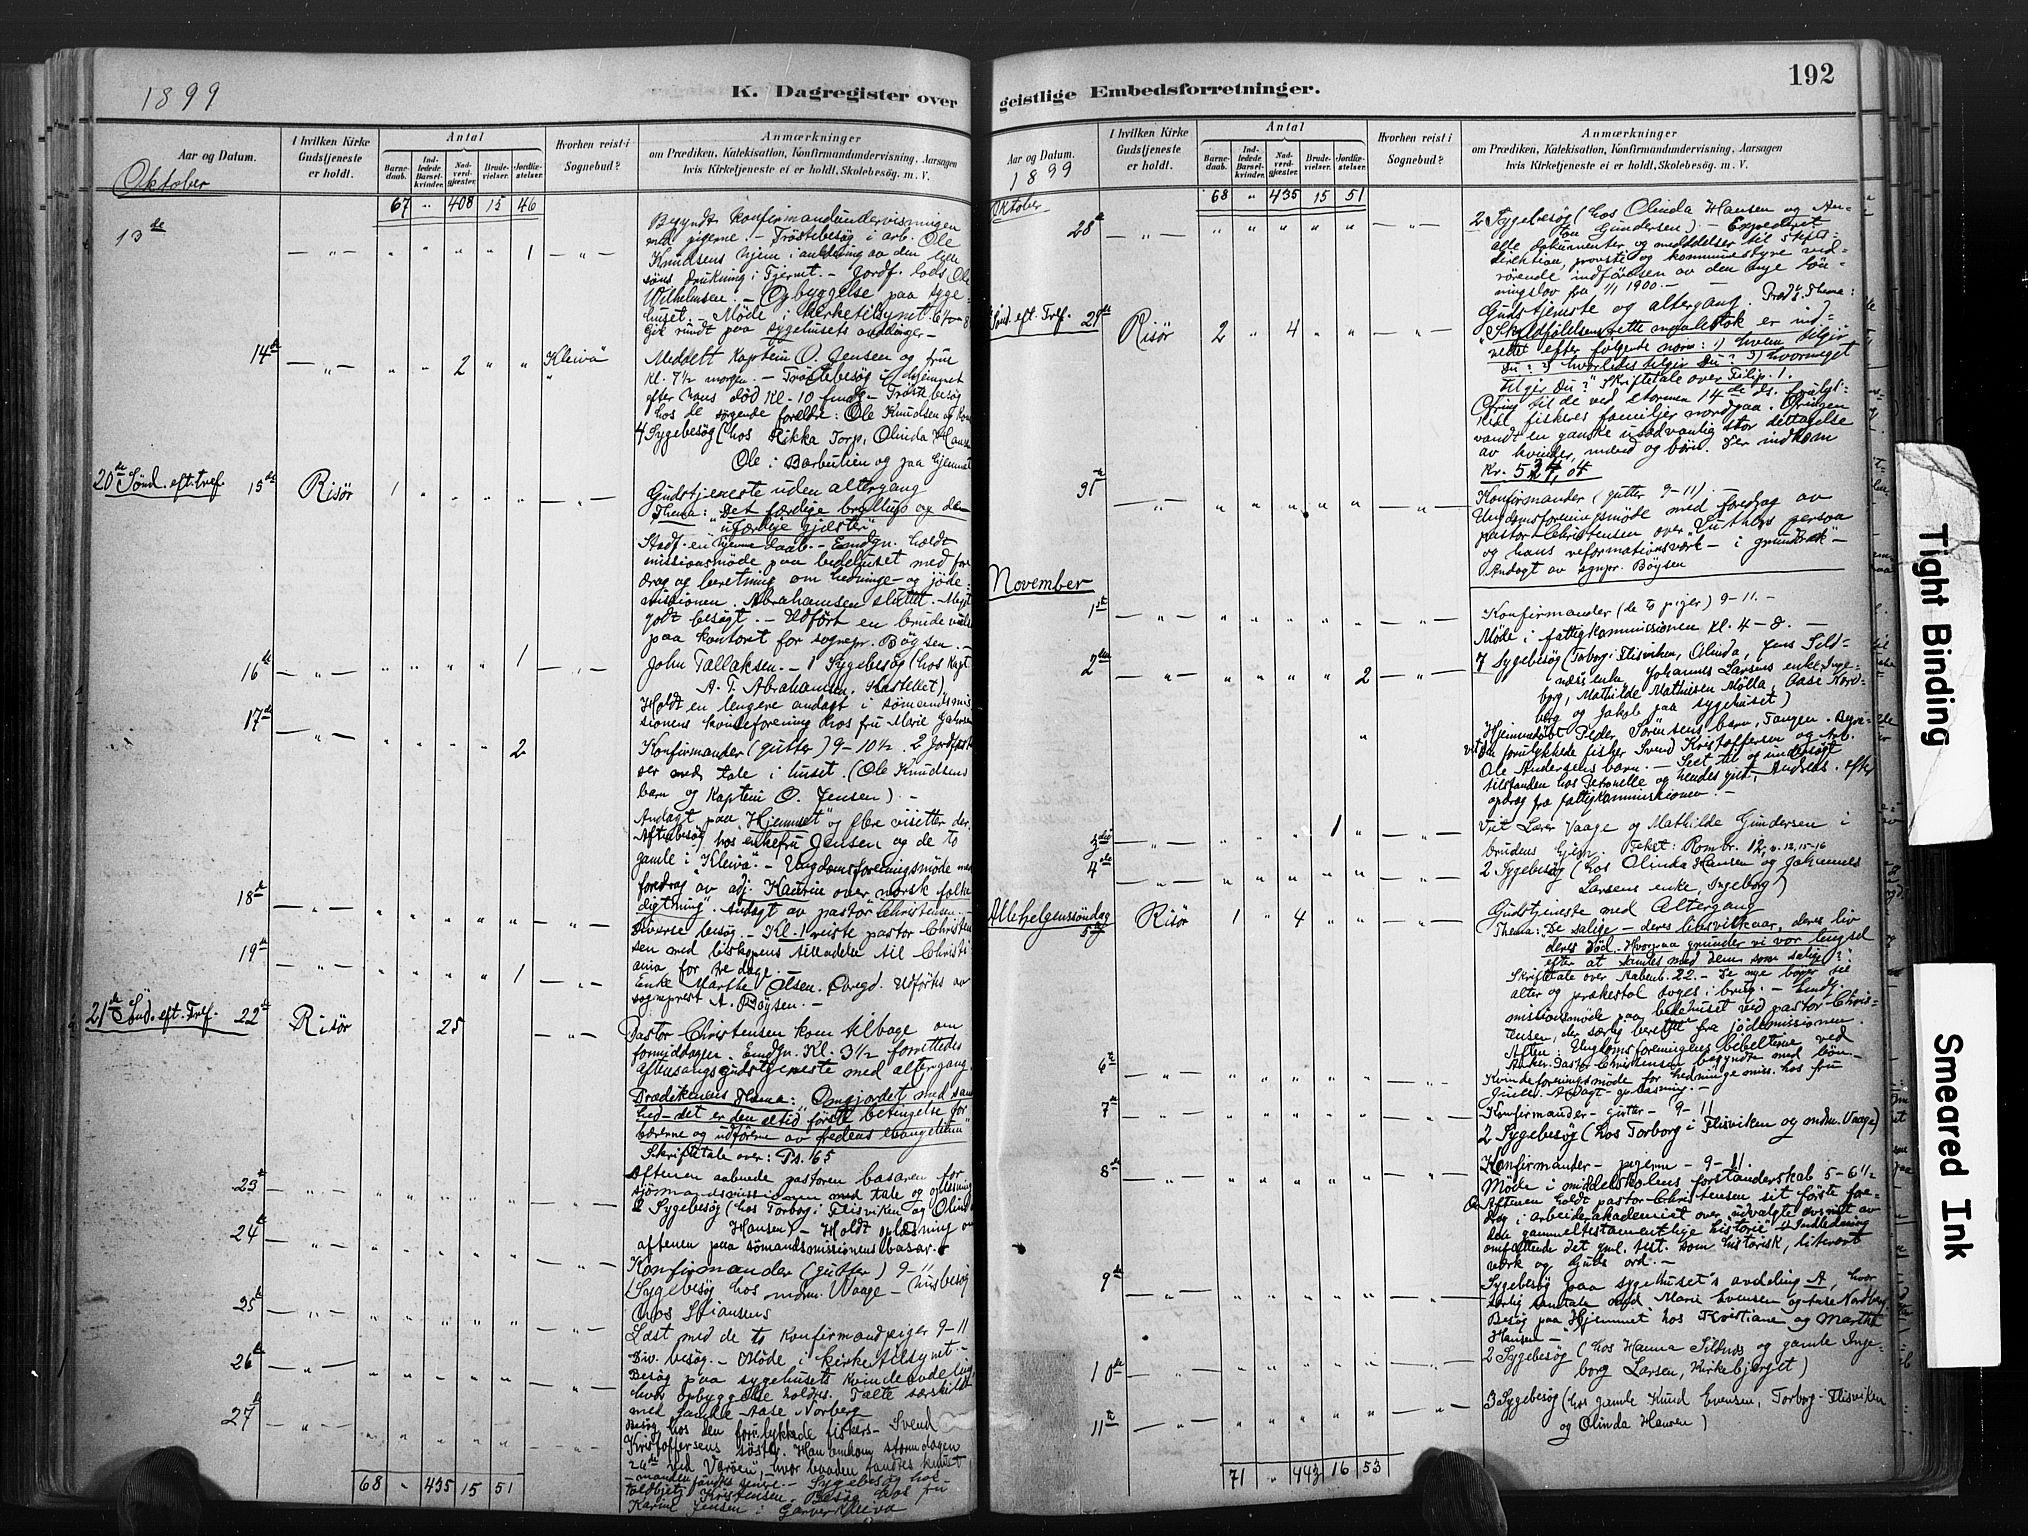 1899
K. Dagregister over
Aar og Datum.
I hvilken Kirke Gudstjeneste er holdt.
Antal
Barnedaab.
Indledede Barselkvinder.
Nadverdgjester.
Brudevielser.
Jordfæstelser.
Hvorhen reist i Sognebud?
Anmærkninger
om Prædiken, Katekisation, Konfirmandundervisning, Aarsagen
hvis Kirketjeneste ei er holdt, Skolebesøg. m. V.
Oktober
67 " 408 15 46
13de
— " — " " " " 1 — " —
Begyndt Konfirmandundervisningen
med pigerne. — Tröstebesög i arb. Ole
Knudsens hjem i anledning av den
söns drukning i Tjernet. — Jordf. Lods Ole
Wilhelmsen. — Opbyggelse paa syge-
huset. — Möde i kirketilsynet.
Gik rundt paa sygehusets avdlinger —
14de — " — " " 2 " " "Kleiva"
Meddelt Kaptein O. Jensen og frue
Kl. 7½ morgen. — Tröstebesög i hjemmet
efter hans död Kl. 10 fmdg. — Tröstebesög
hos de sörgende forældre: Ole Knudsen og Kone
4 Sygebesög (hos Rikka Torp, Olinda Hansen
Ole i Barbulien og paa hjemmet
20de Sönd. eft. tref. 15de Risör 1 " " " " — " —
Gudstjeneste uden altergang
Thema: "Det færdige bryllup og de
ufærdige gjæster"
Stadf. en hjemmedaab. — Emdgn. holdt
missionsmöde paa bedehuset med fore
drag og beretning om hedninge- og jöde-
missionen. Abrahamsen sluttet. — Meget
godt besögt. — Udfört en brudevielse
paa kontoret for sognepr. Böysen. —
16de — " — " " " " 1 — " —
John Tallaksen. — 1 Sygebesög (hos Kapt.
A. T. Abrahamsen, Kastellet)
17de — " — " " " " 2
Holdt en længere andagt i sömandsmis
sionens kvindeforening hos fru Marie
Konfirmander (gutter) 9 - 10½. 2 Jordfæstel
ser med tale i huset. (Ole Knudsens
barn og Kaptein O. Jensen). —
Andagt paa "Hjemmet" og flere visitter der.
Aftenbesög hos enkefru Jensen og de to
gamle i "Kleiva". — Ungdomsforeningsmöde med
foredrag av adj. Kaurin over "norsk folke
digtning". Andagt av pastor Christensen. —
18de — " — " " " " " — " —
Diverse besög. — Kl. 1 reiste pastor Christen
sen med biskopens tilladelse til Christi
ania for tre dage. —
19de — " — " " " " 1 — " —
Enke Marthe Olsen, Övregd. Udförtes av
sogneprest A. Böysen. —
21de Sönd. eft. Tref. 22de Risör " " 25 " " — " —
Pastor Christensen kom tilbage om
formiddagen. Emdgn. Kl. 3½ forrettedes
aftensangsgudstjeneste med altergang.
Prædikenens thema: Omgjordet med sand
hed — det er den altid förste betingelse for
bærerne og udförerne av fredens evangelium"
Skriftetale over: Ps. 65
23de — " — " " " " " — " —
Aftenen aabnede pastoren basaren for
sjömandsmissionen med tale og oplæsning
2 Sygebesög (hos Torborg i Flisviken og Olinda
Hansen) — Holdt oplæsning om
aftenen paa sömandsmissionens basar.
24de — " — " " " " " — " —
Konfirmander (gutter) 9 - 11
1 Sygebesög hos mdm. Vaage — husbesög
hos Stiansens
25de — " — " " " " " — " —
Læst med de to Konfirmandpiger 9 - 11
26de — " — " " " " " — " —
Div. besög. — Möde i kirketilsynet. —
Besög paa sygehusets kvindeavdeling,
hvor opbyggelse holdtes. Talte særskilt
med gamle Aase Norberg
27de — " — " " " " " — " —
Besög hos den forulykkede fiskers — Svend
Kristoffersens söster. Han omkom stormdagen
ved Varöen, hvor baaden fandtes knust,
Sygebesög hos
Kristensen. Besög hos fru
Karine Jensen i Garverkleiva
68 " 435 15 51
geistlige Embedsforretninger.
192
Aar og Datum.
1899
I hvilken Kirke Gudstjeneste er holdt.
Antal
Barnedaab.
Indledede Barselkvinder.
Nadverdgjester.
Brudevielser.
Jordfæstelser.
Hvorhen reist i Sognebud?
Anmærkninger
om Prædiken, Katekisation, Konfirmandundervisning, Aarsagen
hvis Kirketjeneste ei er holdt, Skolebesøg. m. V.
Oktober
68 " 435 15 51
28de — " — " " " " " — " —
2 Sygebesög (hos Olinda Hansen og An-
ton Gundersen). — Expederet
alle dokumenter og meddelelser til stifts-
direktion, provsti og kommunestyre ved-
rörende indförelsen av den nye lön-
ningslov fra 1/1 1900. —
Sönd. eft. Tref. 29de Risör 2 " 4 " " — " —
Gudstjeneste og altergang. Præd.s Thema:
"Skyldfölelsens rette maalestok er ind-
rettet efter fölgende norm: 1) hvem tilgir
Du? 2) hvorledes tilgir Du? 3) hvormeget
tilgir Du?" Skriftetale over Filip. 1.
Ofring til de ved stormen 14de ds. forulyk-
kede fiskeres familjer nordpaa. Ofringen
vandt en ganske usædvanlig stor deltagelse
av kvinder, mænd og börn. Der indkom
Kr. 534,05
31te — " — " " " " " — " —
Konfirmander (gutter 9 - 11)
Ungdomsforeningsmöde med foredrag av
pastor Christensen over "Luthers person
og hans reformationsværk — i grundtræk —
Andagt av sgnpr. Böysen
November
1ste — " — " " " " " — " —
Konfirmander (de to piger) 9 - 11. —
Möde i fattigkommissionen Kl. 4 - 8. —
2den — " — " " " " 2 — " —
7 Sygebesög (Torborg i Flisviken, Olinda, Jens Sild-
næs enke, Johannes Larsens enke Inge-
borg, Mathilde Mathisen Mölla, Aase Nord-
berg og Jakob paa sygehuset)
Hjemmedöbt Peder Sörensens barn, Tangen. Begra-
vet den forulykkede fisker Svend Kristoffersen og Arb.
Ole Andersens barn. — Seet til og undersögt
tilstanden hos Petronelle og hendes gut, Andreas, efter
opdrag fra fattigkommissionen. —
3die — " — " " " 1 " — " —
Viet Lærer Vaage og Mathilde Gundersen i
brudens hjem. Tekst: Rombr. 12, 11. 12, 15-16
4de — " — " " " " " — " —
2 Sygebesög (hos Olinda Hansen og Johannes
Larsens enke, Ingeborg)
Allehelgenssöndag 5te Risör 1 " 4 " " — " —
Gudstjeneste med Altergang
Thema: "De salige — deres livsvilkaar, deres liv
deres död. Hvorpaa grunder vi vor længsel
efter at samles med dem som salige?"
Skriftetale over Aabenb. 22. — De nye böger til
alter og prækestol toges i brug. — Emdg.
missionsmöde paa bedehuset ved pastor Chris-
tensen, der særlig berettet fra jödemissionen.
Aften: Ungdomsforeningens bibeltime ved
Anker. Pastor Christensen begyndte med bön —
6te — " — " " " " " — " —
Kvindeforeningsmöde for hedningemiss. hos fru
Andagt — oplæsning. —
7de — " — " " " " " — " —
Konfirmander — gutter — 9 - 11
2 Sygebesög (hos Torborg i Flisviken og mdm. Vaage)
8de — " — " " " " " — " —
Konfirmander — pigerne — 9 - 11.
Möde i middelskolens forstanderskab 5 - 6½
Om Aftenen holdt pastor Christensen sit förste fore-
drag i arbeiderakademiet over "udvalgte avsnit av
den gammeltestamentlige historie". Indledning
omfattende det gml. test. som historisk, literært
værk og Guds ord. —
9de — " — " " " " " — " —
Sygebesög paa sygehuset's avdeling A, hvor
særlig samtale med Marie Evensen og Aase Nordberg
Besög paa Hjemmet hos Kristiane og Marthe
Hansen —
10de — " — " " " " " — " —
2 Sygebesög (hos Hanna Sildnes og gamle Inge-
borg Larsen, Kirkebjerget)
11te — " — " " " " " — " —
3 Sygebesög (hos gamle Knud Evensen, Torborg-Flisviken
og Olinda Hansen)
71 " 443 16 53
Tight Binding
Smeared Ink